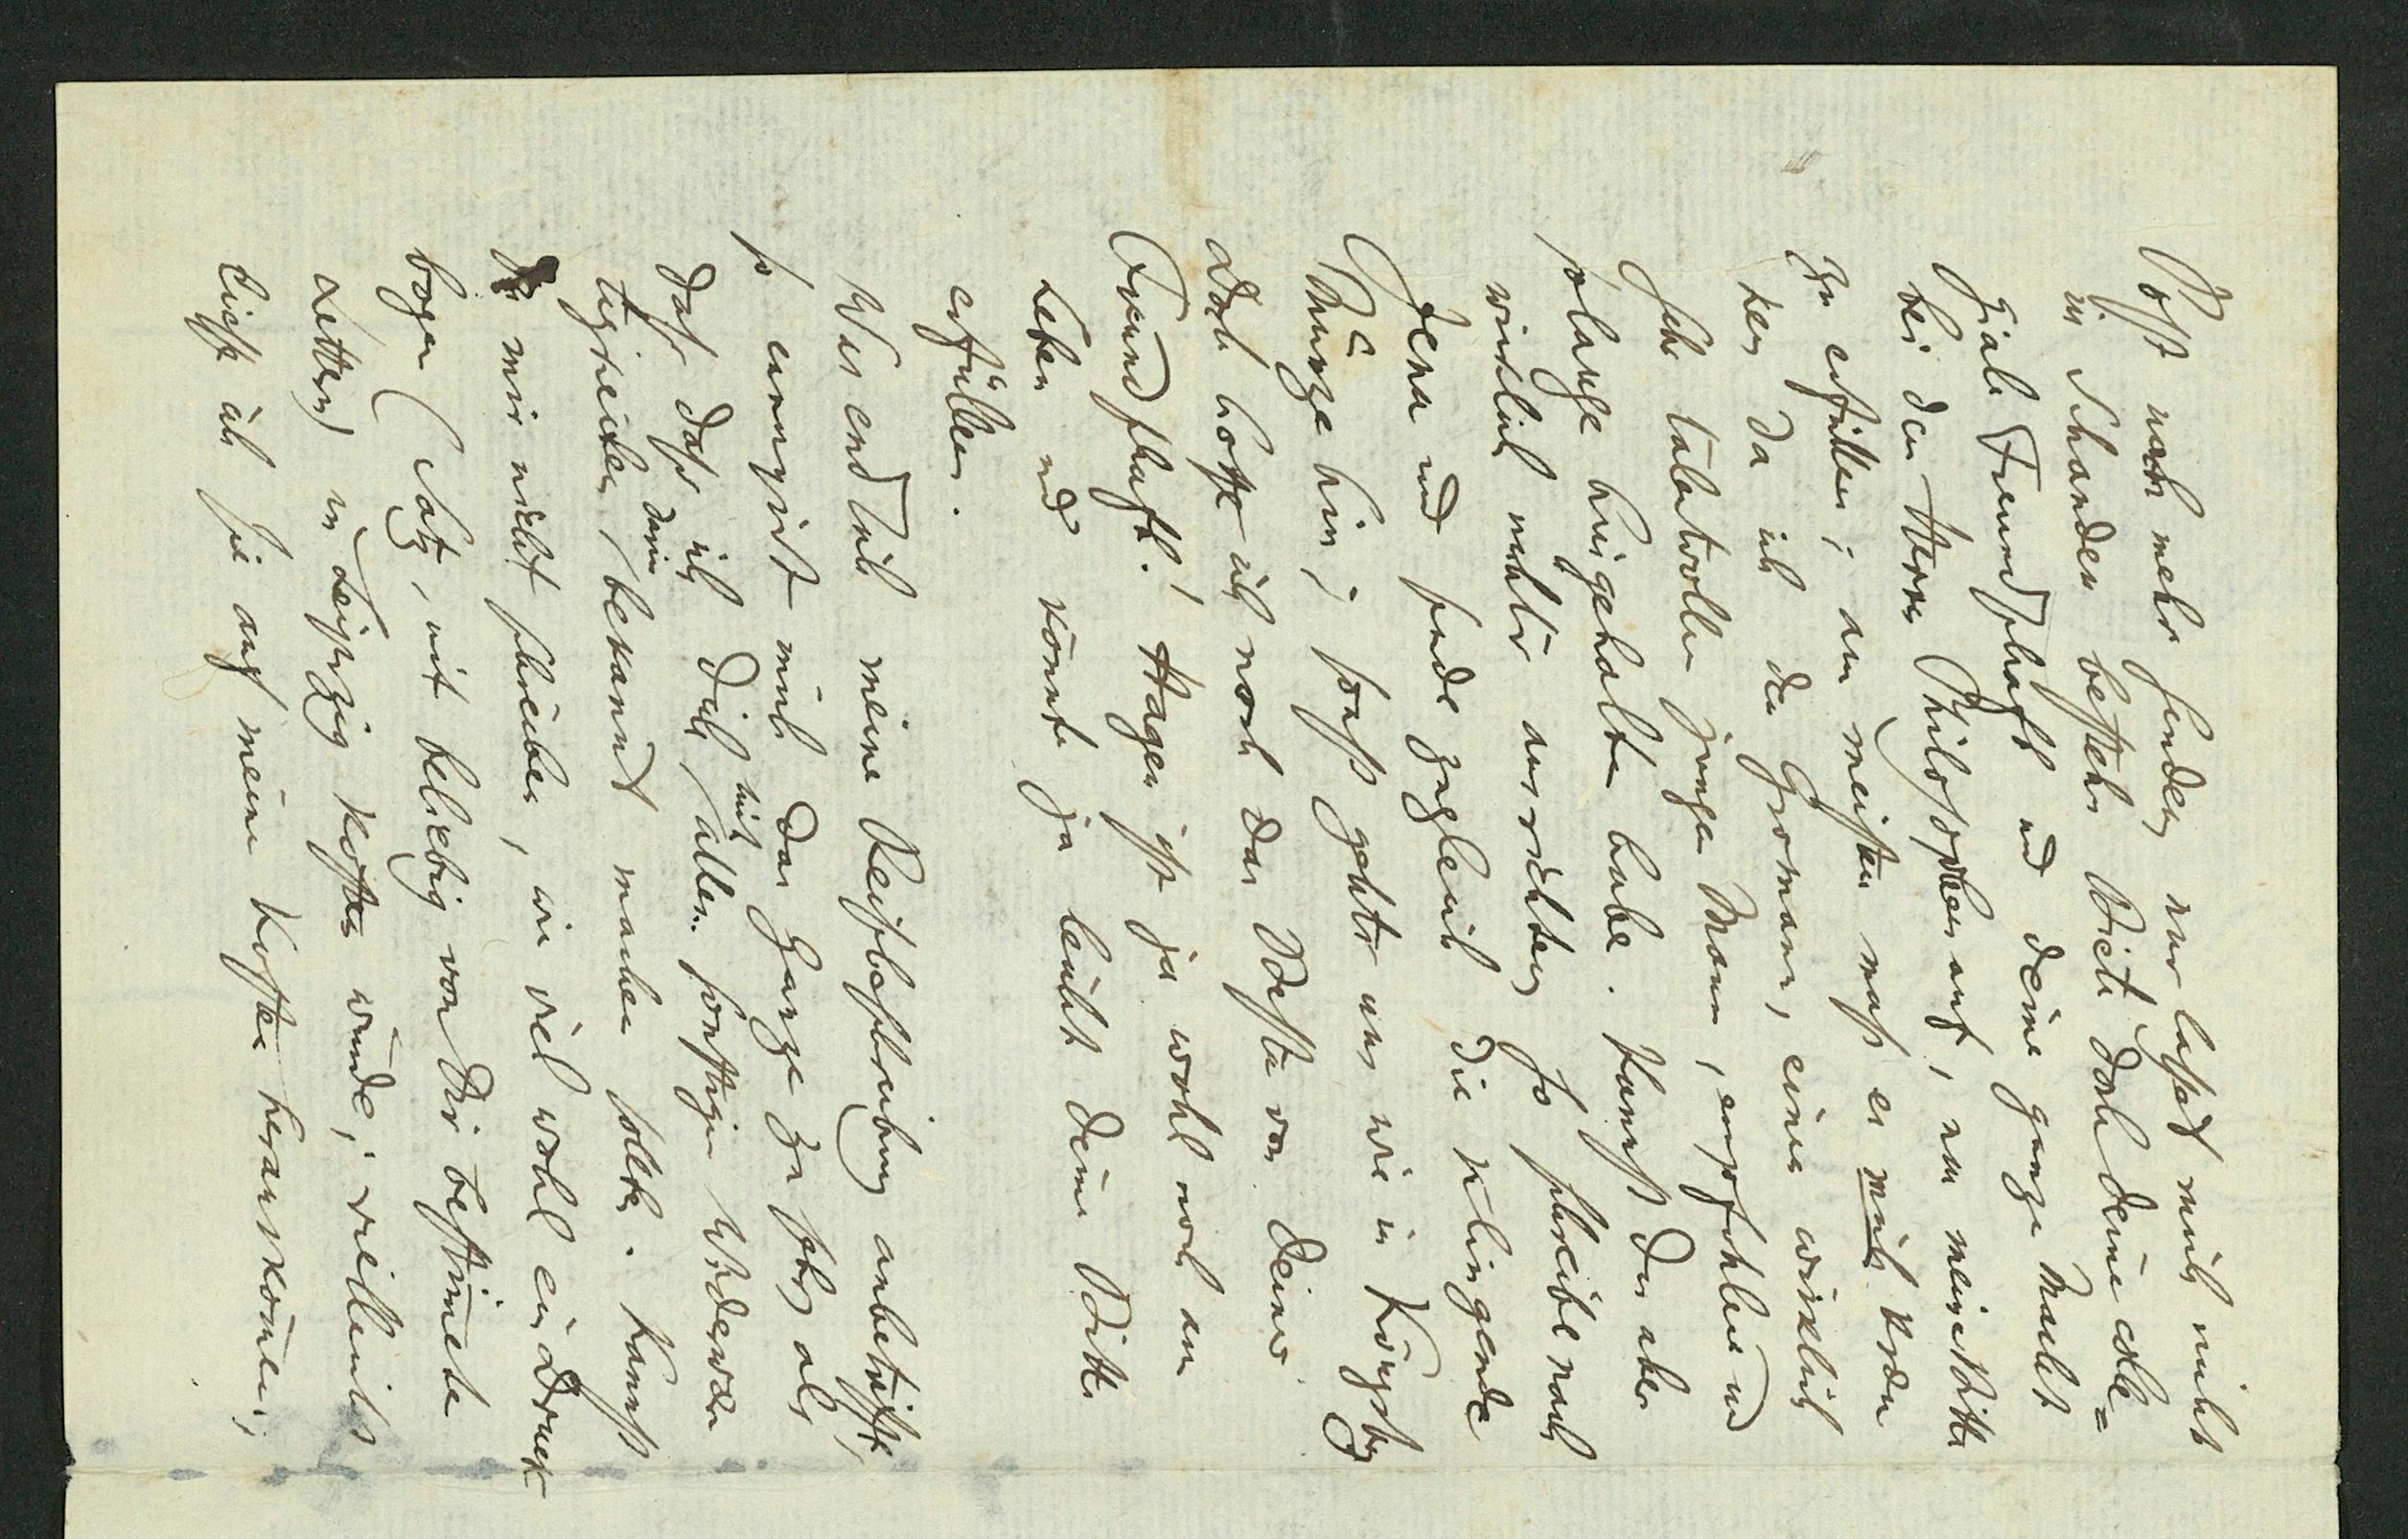 Post mehr senden nur lasset mich nicht
in Schanden bestehn biete doch deine colle=
giale Freundschaft und deine ganze Macht
bei den Herrn Philosophen auf, um meine Bitte
zu erfüllen; am meisten muß es mich
ken da ich den Gromann, einen wirklich
sehr talentvollen jungen Mann, empfohlen und
solange hingehalten habe. Kannst du aber
wirklich nichts ausrichten so schreibe nach
Jena und sende zugleich die klingende
Münze hin; sonst gehts uns wie in Königsbg
doch hoffe ich noch das Beste von deiner
Freundschaft! Hagen ist ja wohl noch am
Leben und könnte ja leicht deine Bitte
erfüllen.
Was endlich meine Reisebeschreibung anbetrifft,
so ennuyirt mich das Ganze zu sehr als
daß daß ich dich mit allen sonstigen Widerwär
tigkeiten darin bekannt machen sollte. Kannst
du mir nicht schreiben, wie viel wohl ein Druck
bogen (Satz, mit beliebig von dir bestimmten
Lettern) in Leipzig kosten würde; vielleicht
ließe ich sie auf meine Kosten herauskommen;